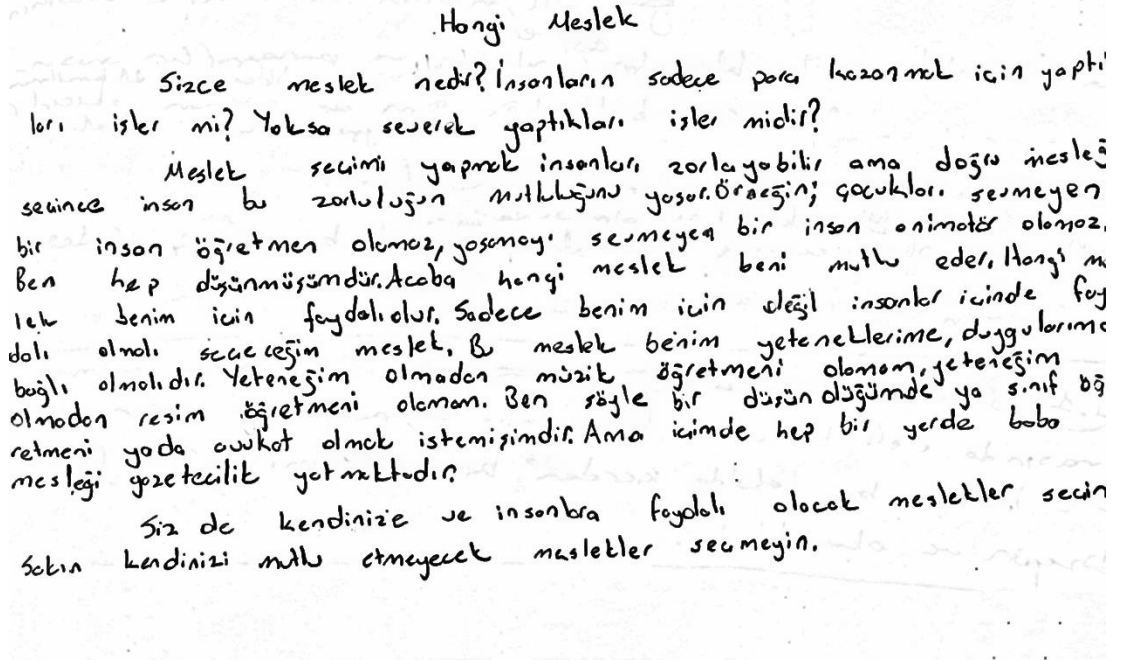 Hangi Meslek
Sizce meslek nedir? İnsanların sadece para kazanmak için yaptı
ları işler mi? Yoksa severek yaptıkları işler midir?
Meslek seçimi yapmak insanları zorlayabilir ama doğru mesleğ
seçince insan bu zorluluğun mutluluğunu yaşar. Örneğin; çocukları sevmeyen
bir insan öğretmen olamaz, yaşamayı sevmeyen bir insan animatör olamaz.
Ben hep düşünmüşümdür. Acaba hangi meslek beni mutlu eder. Hangi m
lek benim için faydalı olur. Sadece benim için değil insanlar içinde fay
dalı olmalı seçeceğim meslek. Bu meslek benim yeteneklerime, duygularıma
bağlı olmalıdır. Yeteneğim olmadan müzik öğretmeni olamam, yeteneğim
olmadan resim öğretmeni olamam. Ben şöyle bir düşündüğümde ya sınıf öğ
retmeni yada avukat olmak istemişimdir. Ama içimde hep bir yerde baba
mesleği gazetecilik yatmaktadır.
Siz de kendinize ve insanlara faydalı olacak meslekler seçin
Sakın kendinizi mutlu etmeyecek meslekler seçmeyin.